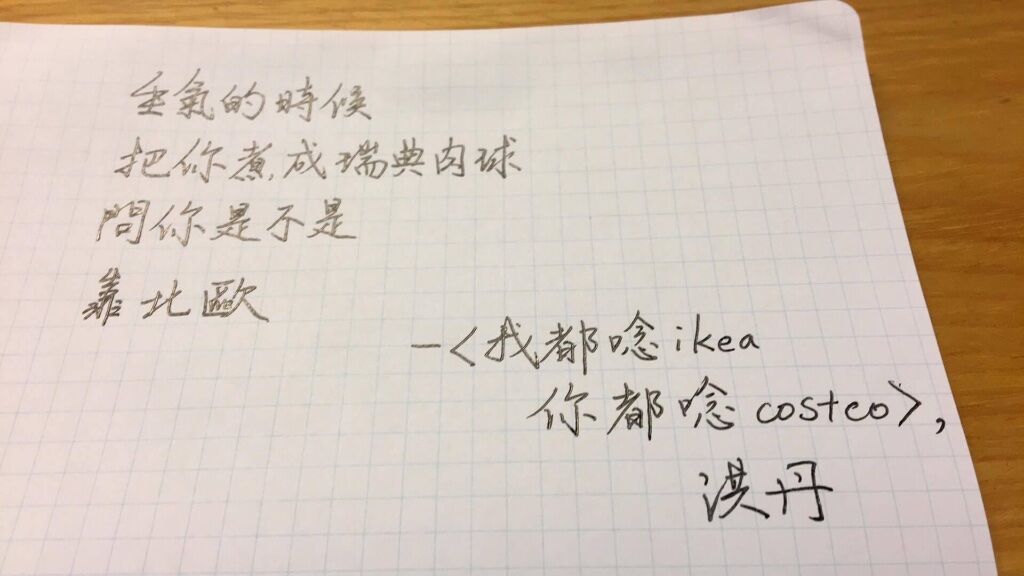 生氣的時候
把你煮成瑞典肉球
問你是不是
靠北歐
—〈我都唸ikea
你都唸costco〉,
洪丹